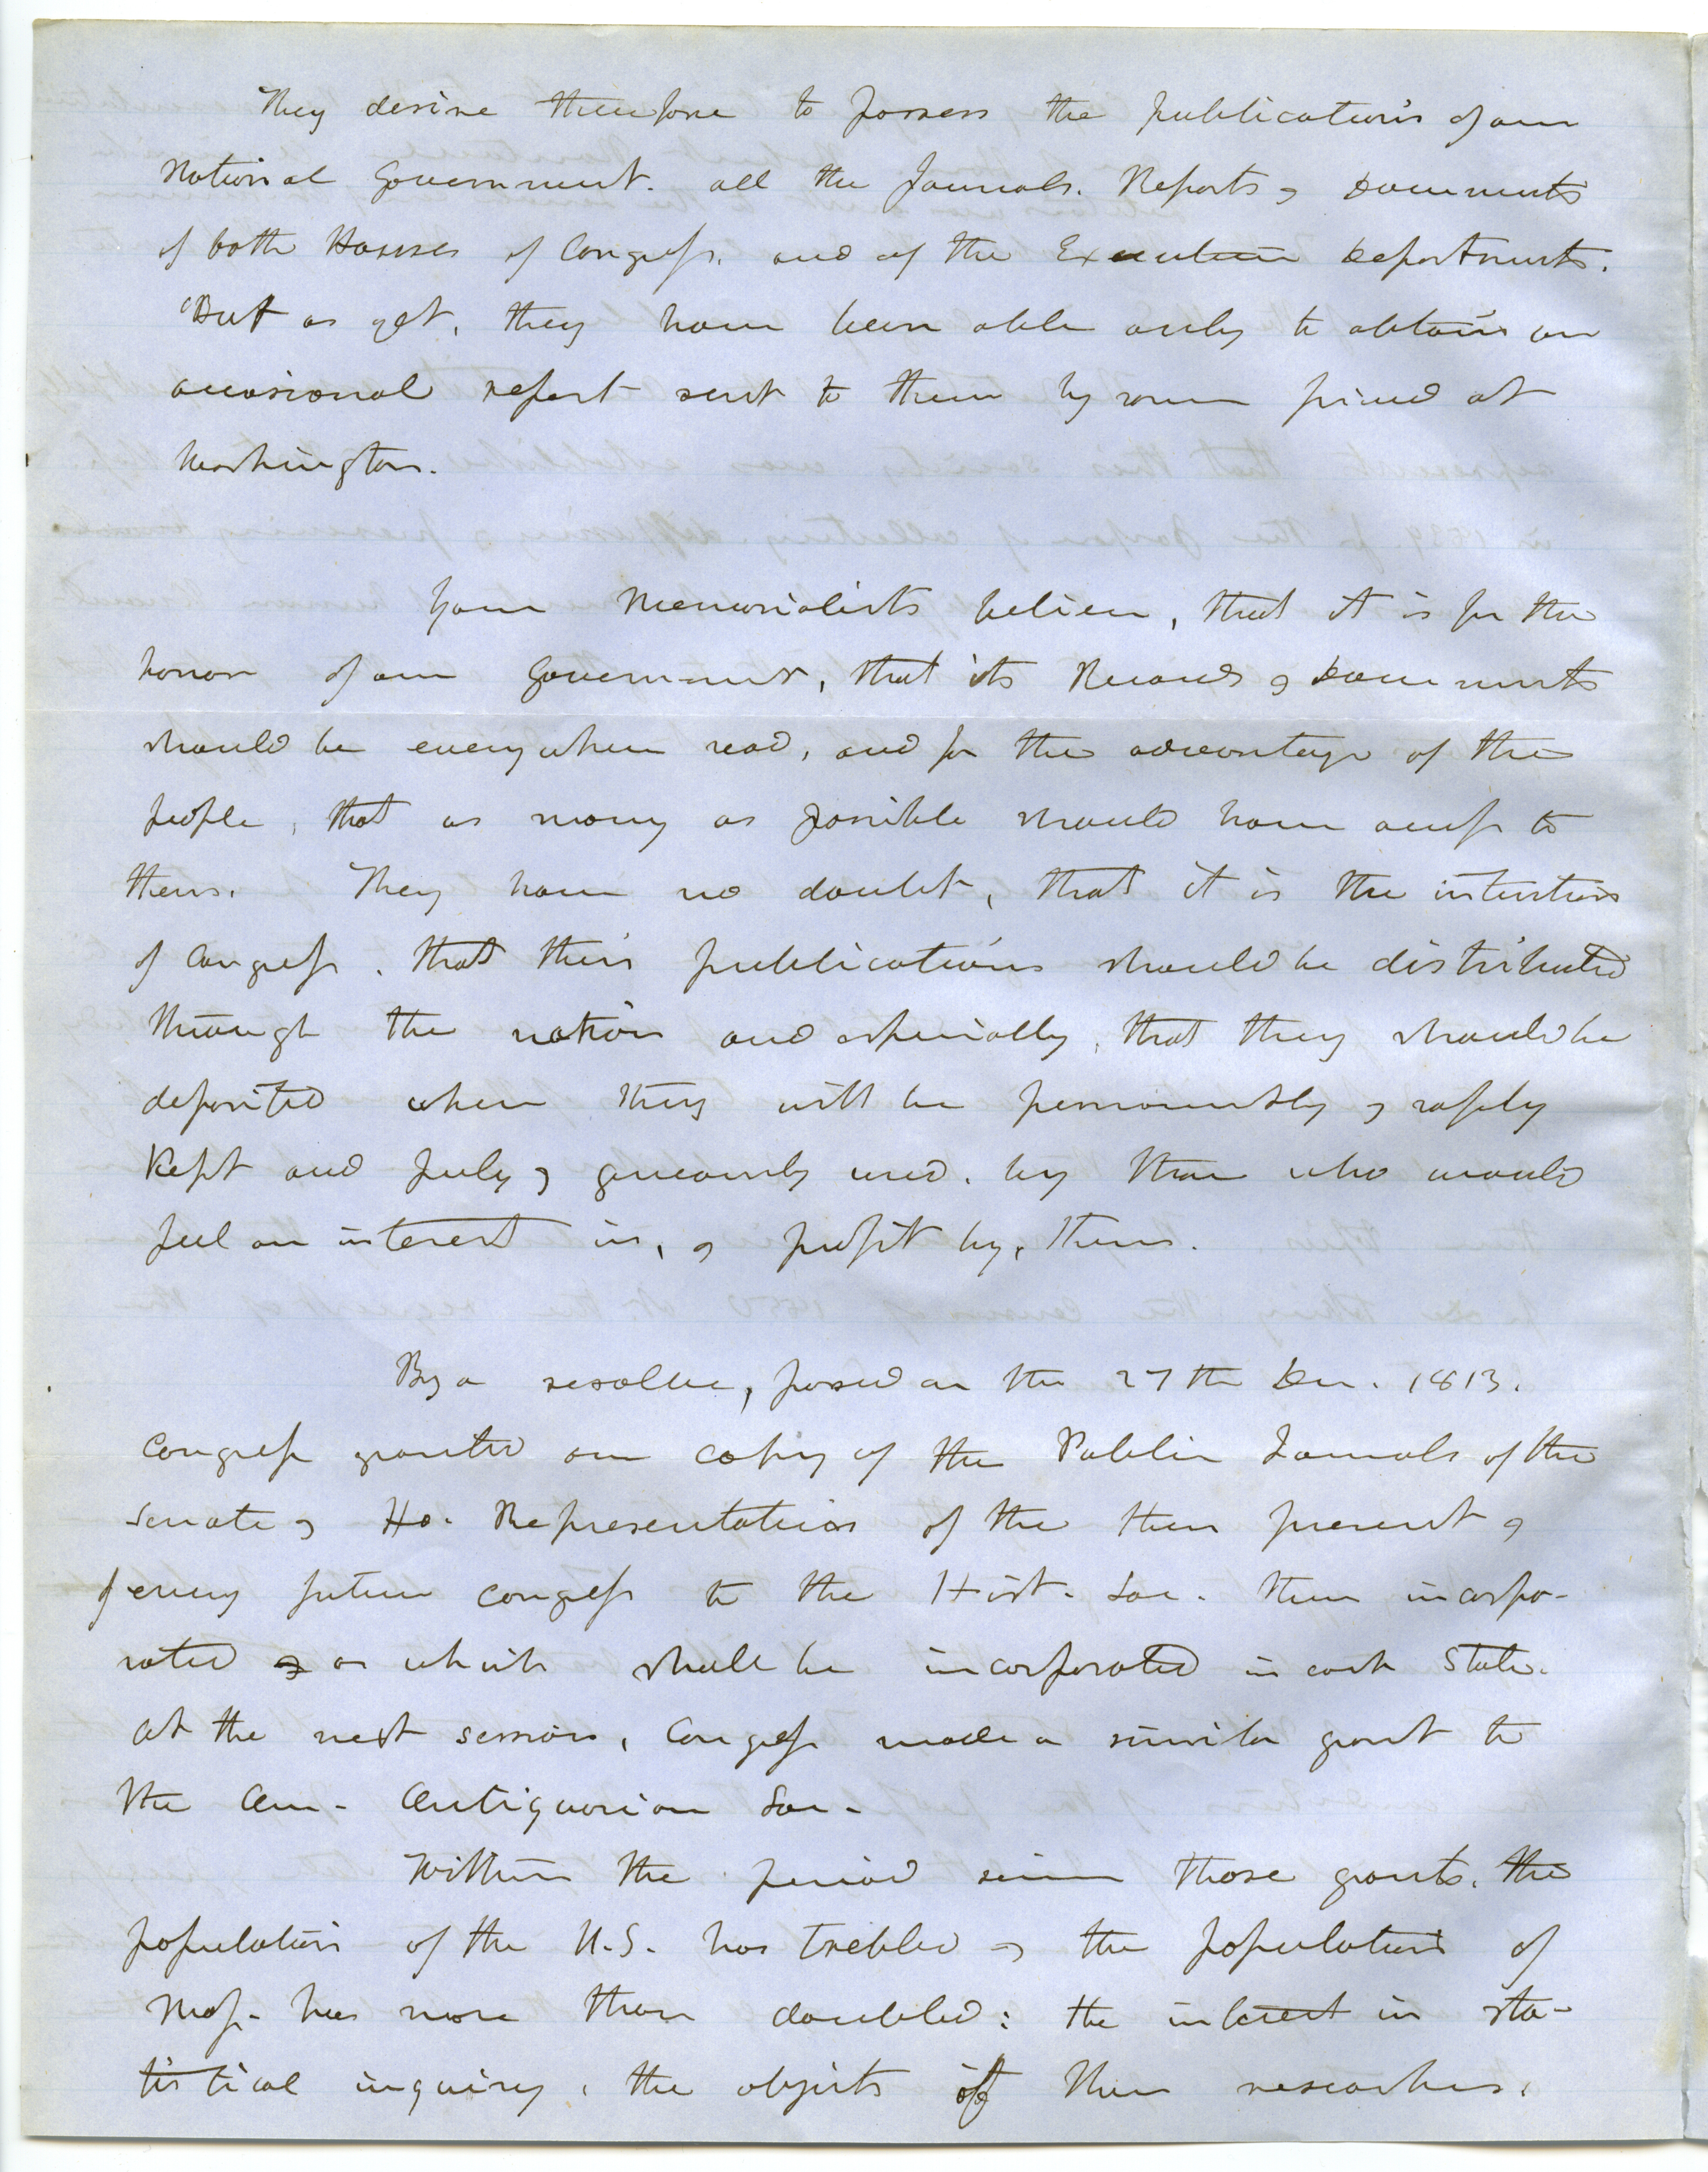 They desire therefore to possess the publications of our
National Government. all the Journals. Reports & Documents
of both Houses of Congress. and of the Executive Departments.
But as yet, they have been able only to obtain an
occasional report sent to them by some friend at
Washington.
Your Memorialists believe, that it is for the
honor of our Government, that its Records & Documents
should be everywhere read, and for the advantage of the
people, that as many as possible should have access to
them. They have no doubt, that it is the intention
of Congress. that their publications should be distributed
through the nation and especially, that they should be
deposited where they will be permanently & safely
kept and freely & generously used. by those who would
feel an interest in, & profit by, them.
By a resolve, passed on the 27th Dec. 1813.
Congress granted one copy of the Public Journals of the
Senate & Ho. Representatives of the then present &
of every future Congress to the Hist. Soc. then incorpo-
rated & or which shall be incorporated in each State.
At the next session, Congress made a similar grant to
the Am. Antiquarian Soc.
Within the period since those grants. the
population of the U.S. has trebled & the population of
Mass. has more than doubled: the interest in sta-
tistical inquiry, the objects of their researches,